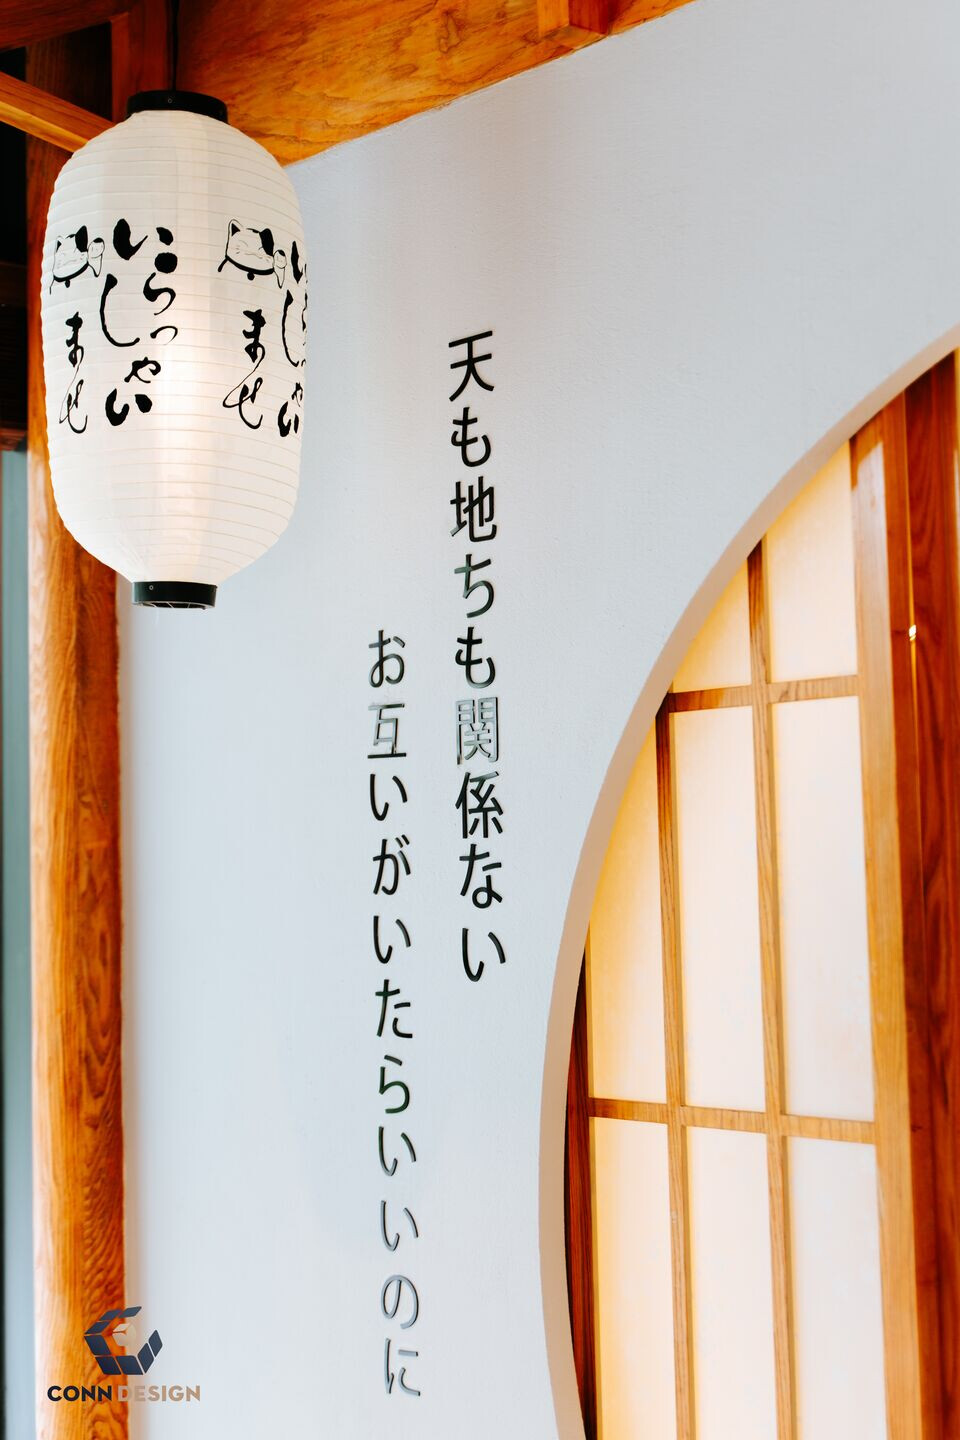 いらっしゃい
ませ
いらっしゃい
ませ
天も地ちも関係ない
お互いがいたらいいのに
CONN DESIGN